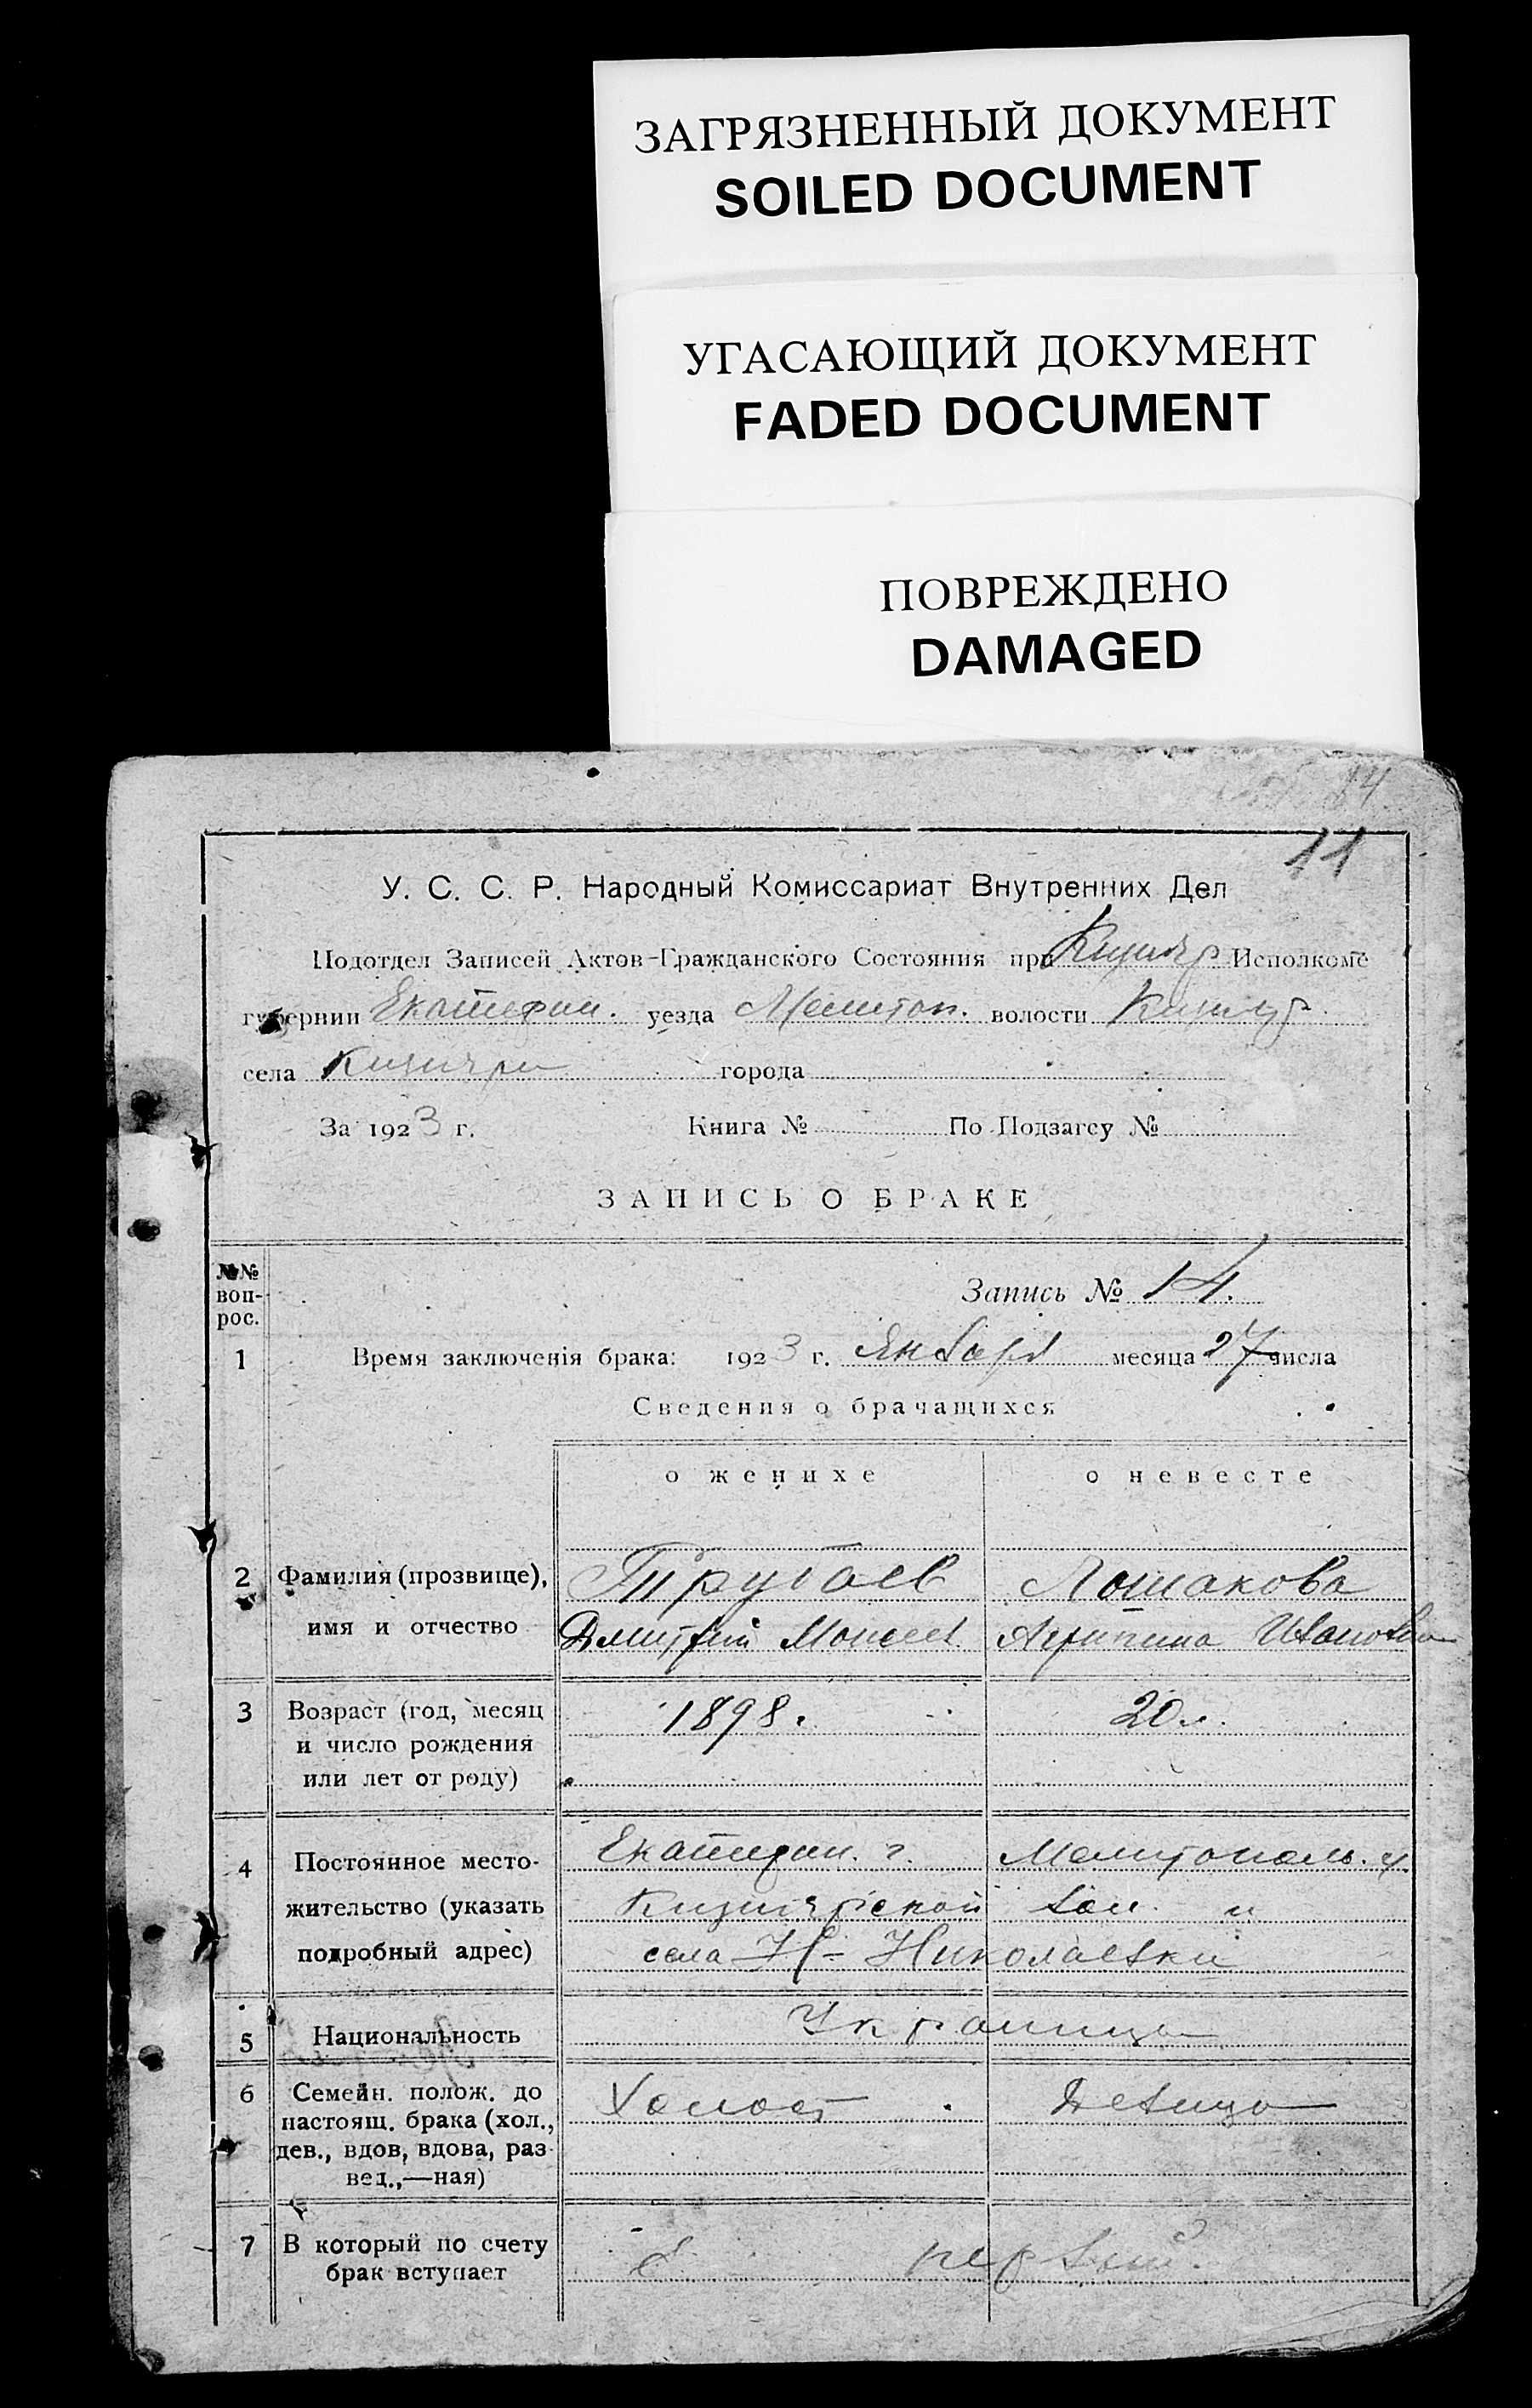 ЗАГРЯЗНЕННЫЙ ДОКУМЕНТ
SOILED DOCUMENT
УГАСАЮЩИЙ ДОКУМЕНТ
FADED DOCUMENT
ПОВРЕЖДЕНО
DAMAGED
14
11
У. С. С. Р. Народный Комиссариат Внутренних Дел
Подотдел Записей Актов-Гражданского Состояния при Кизияр Исполкоме
губернии Екатерин. уезда Мелитоп. волости Кизияр.
села Кизияри города
За 1923 г. Книга № По Подзагсу №
ЗАПИСЬ О БРАКЕ
№№ воп-рос.
Запись № 14.
1 Время заключенія брака: 1923 г. Января месяца 27 числа
Сведения о брачащихся
о женихе о невесте
2 Фамилия (прозвище), Трубаев Лошакова
имя и отчество Дмитрий Моисеев Агрипина Ивановна
3 Возраст (год, месяц 1898. 20 л.
и число рождения
или лет от роду)
4 Постоянное место- Екатерин. г. Мелитополь. у.
жительство (указать Кизиярской вол. и
подробный адрес) села Н- Николаевки
5 Национальность Украинцы
6 Семейн. полож. до Холост Девица
настоящ. брака (хол.,
дев., вдов, вдова, раз-
вед.,—ная)
7 В который по счету первый.
брак вступает